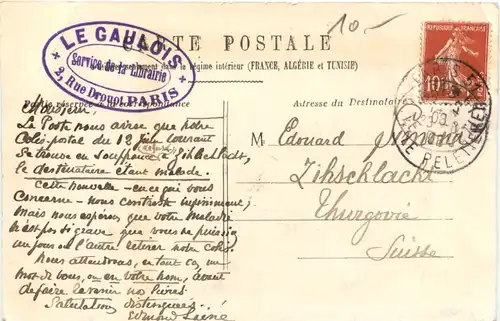 10.-
CARTE POSTALE
LE GAULOIS
Service de la Librairie
2, Rue Drouot
PARIS
dans le régime intérieur (FRANCE, ALGÉRIE et TUNISIE)
Partie réservée à la correspondance
Adresse du Destinataire
RÉPUBLIQUE FRANÇAISE
10
Monsieur,
La Poste nous avise que notre
Colis-postal du 18 courant
Se trouve en Souffrance à Zihlschlacht,
le destinataire étant malade.
Cette nouvelle - en ce qui vous
Concerne - nous contriste infiniment;
Mais nous espérons que votre maladie
n'est pas si grave que vous ne puissiez
un jour ou l'autre retirer notre colis.
Nous attendrons, en tout cas, un
Mot de vous, ou en votre nom, avant
de faire revenir nos livres.
Salutations distinguées.
Edmond
M Edouard
Zihschlacht
Thurgovie
Suisse